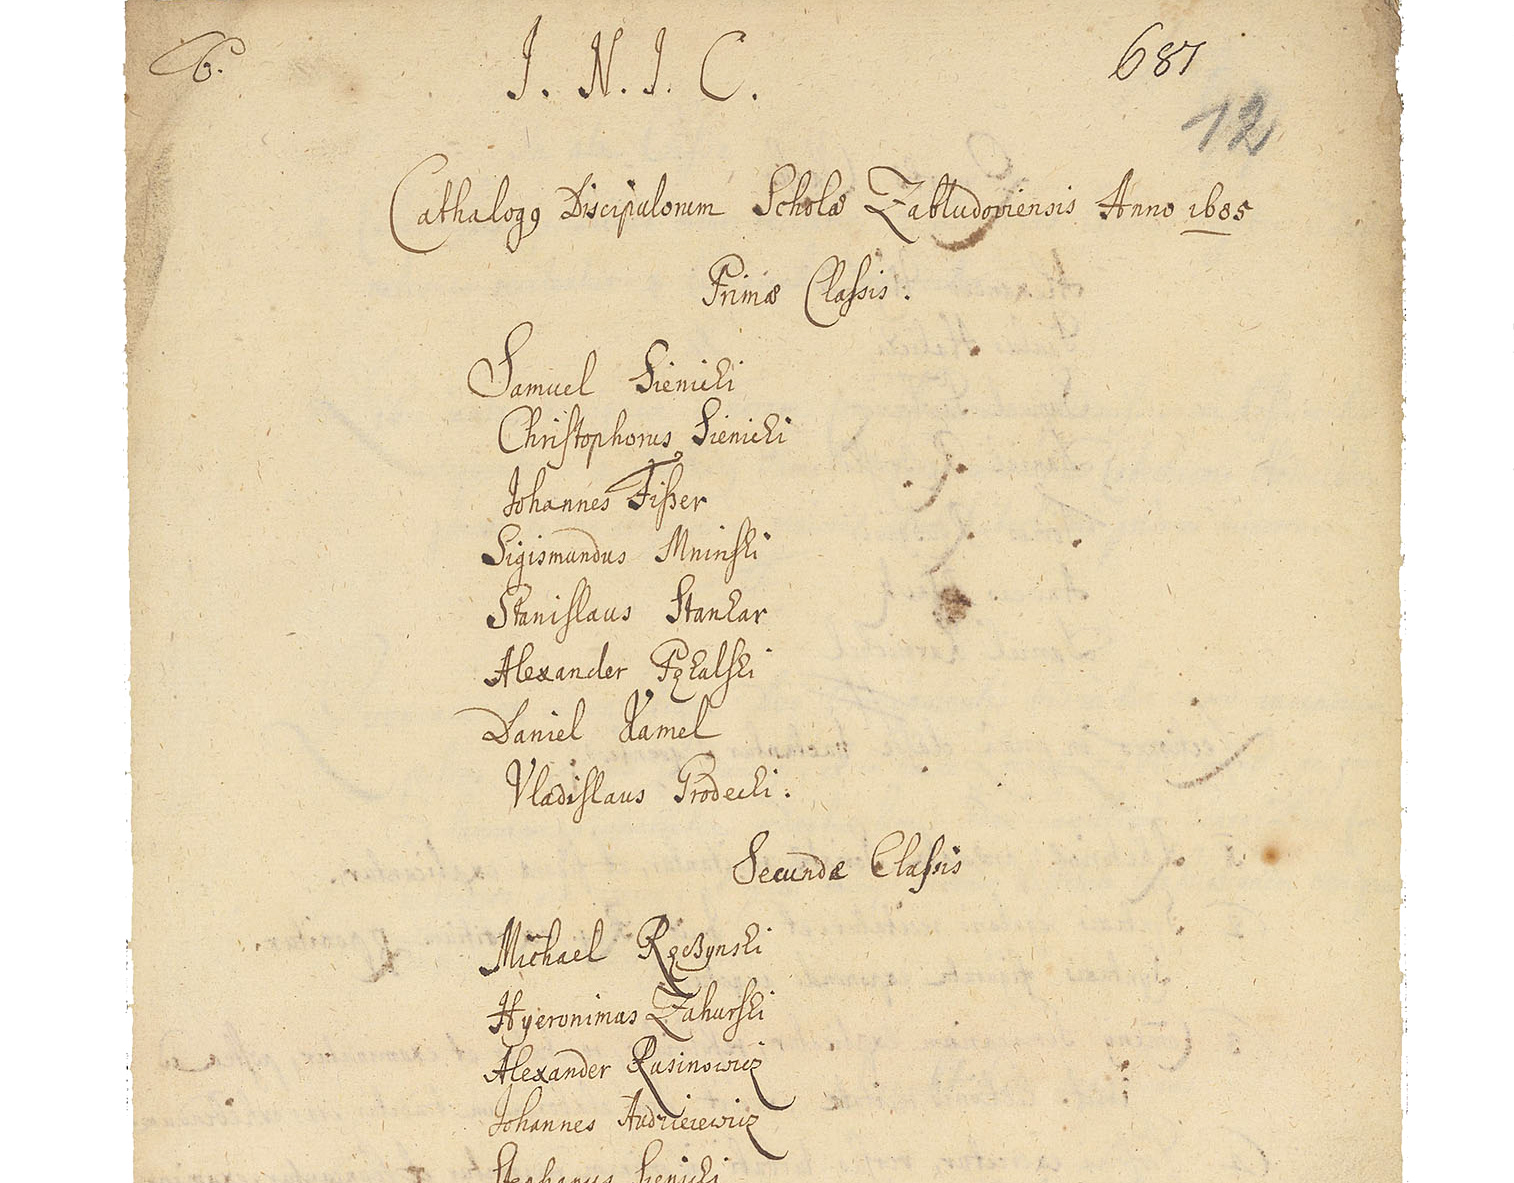 6.
J. N. J. C.
687
12
Cathalogꝰ Discipulorum Scholæ Zabludoviensis Anno 1685
Primæ Claſsis.
Samuel Sienicki
Chriſtophorus Sienicki
Johannes Fiſser
Sigismundus Mninſki
Staniſlaus Stankar
Alexander Pękalſki
Daniel Kamel
Vladiſlaus Grodecki.
Secundæ Claſsis
Michael Ręczynski
Hyeronimus Zahurſki
Alexander Rusinowicz
Johannes Audzieiewicz
Stephanus Sienicki